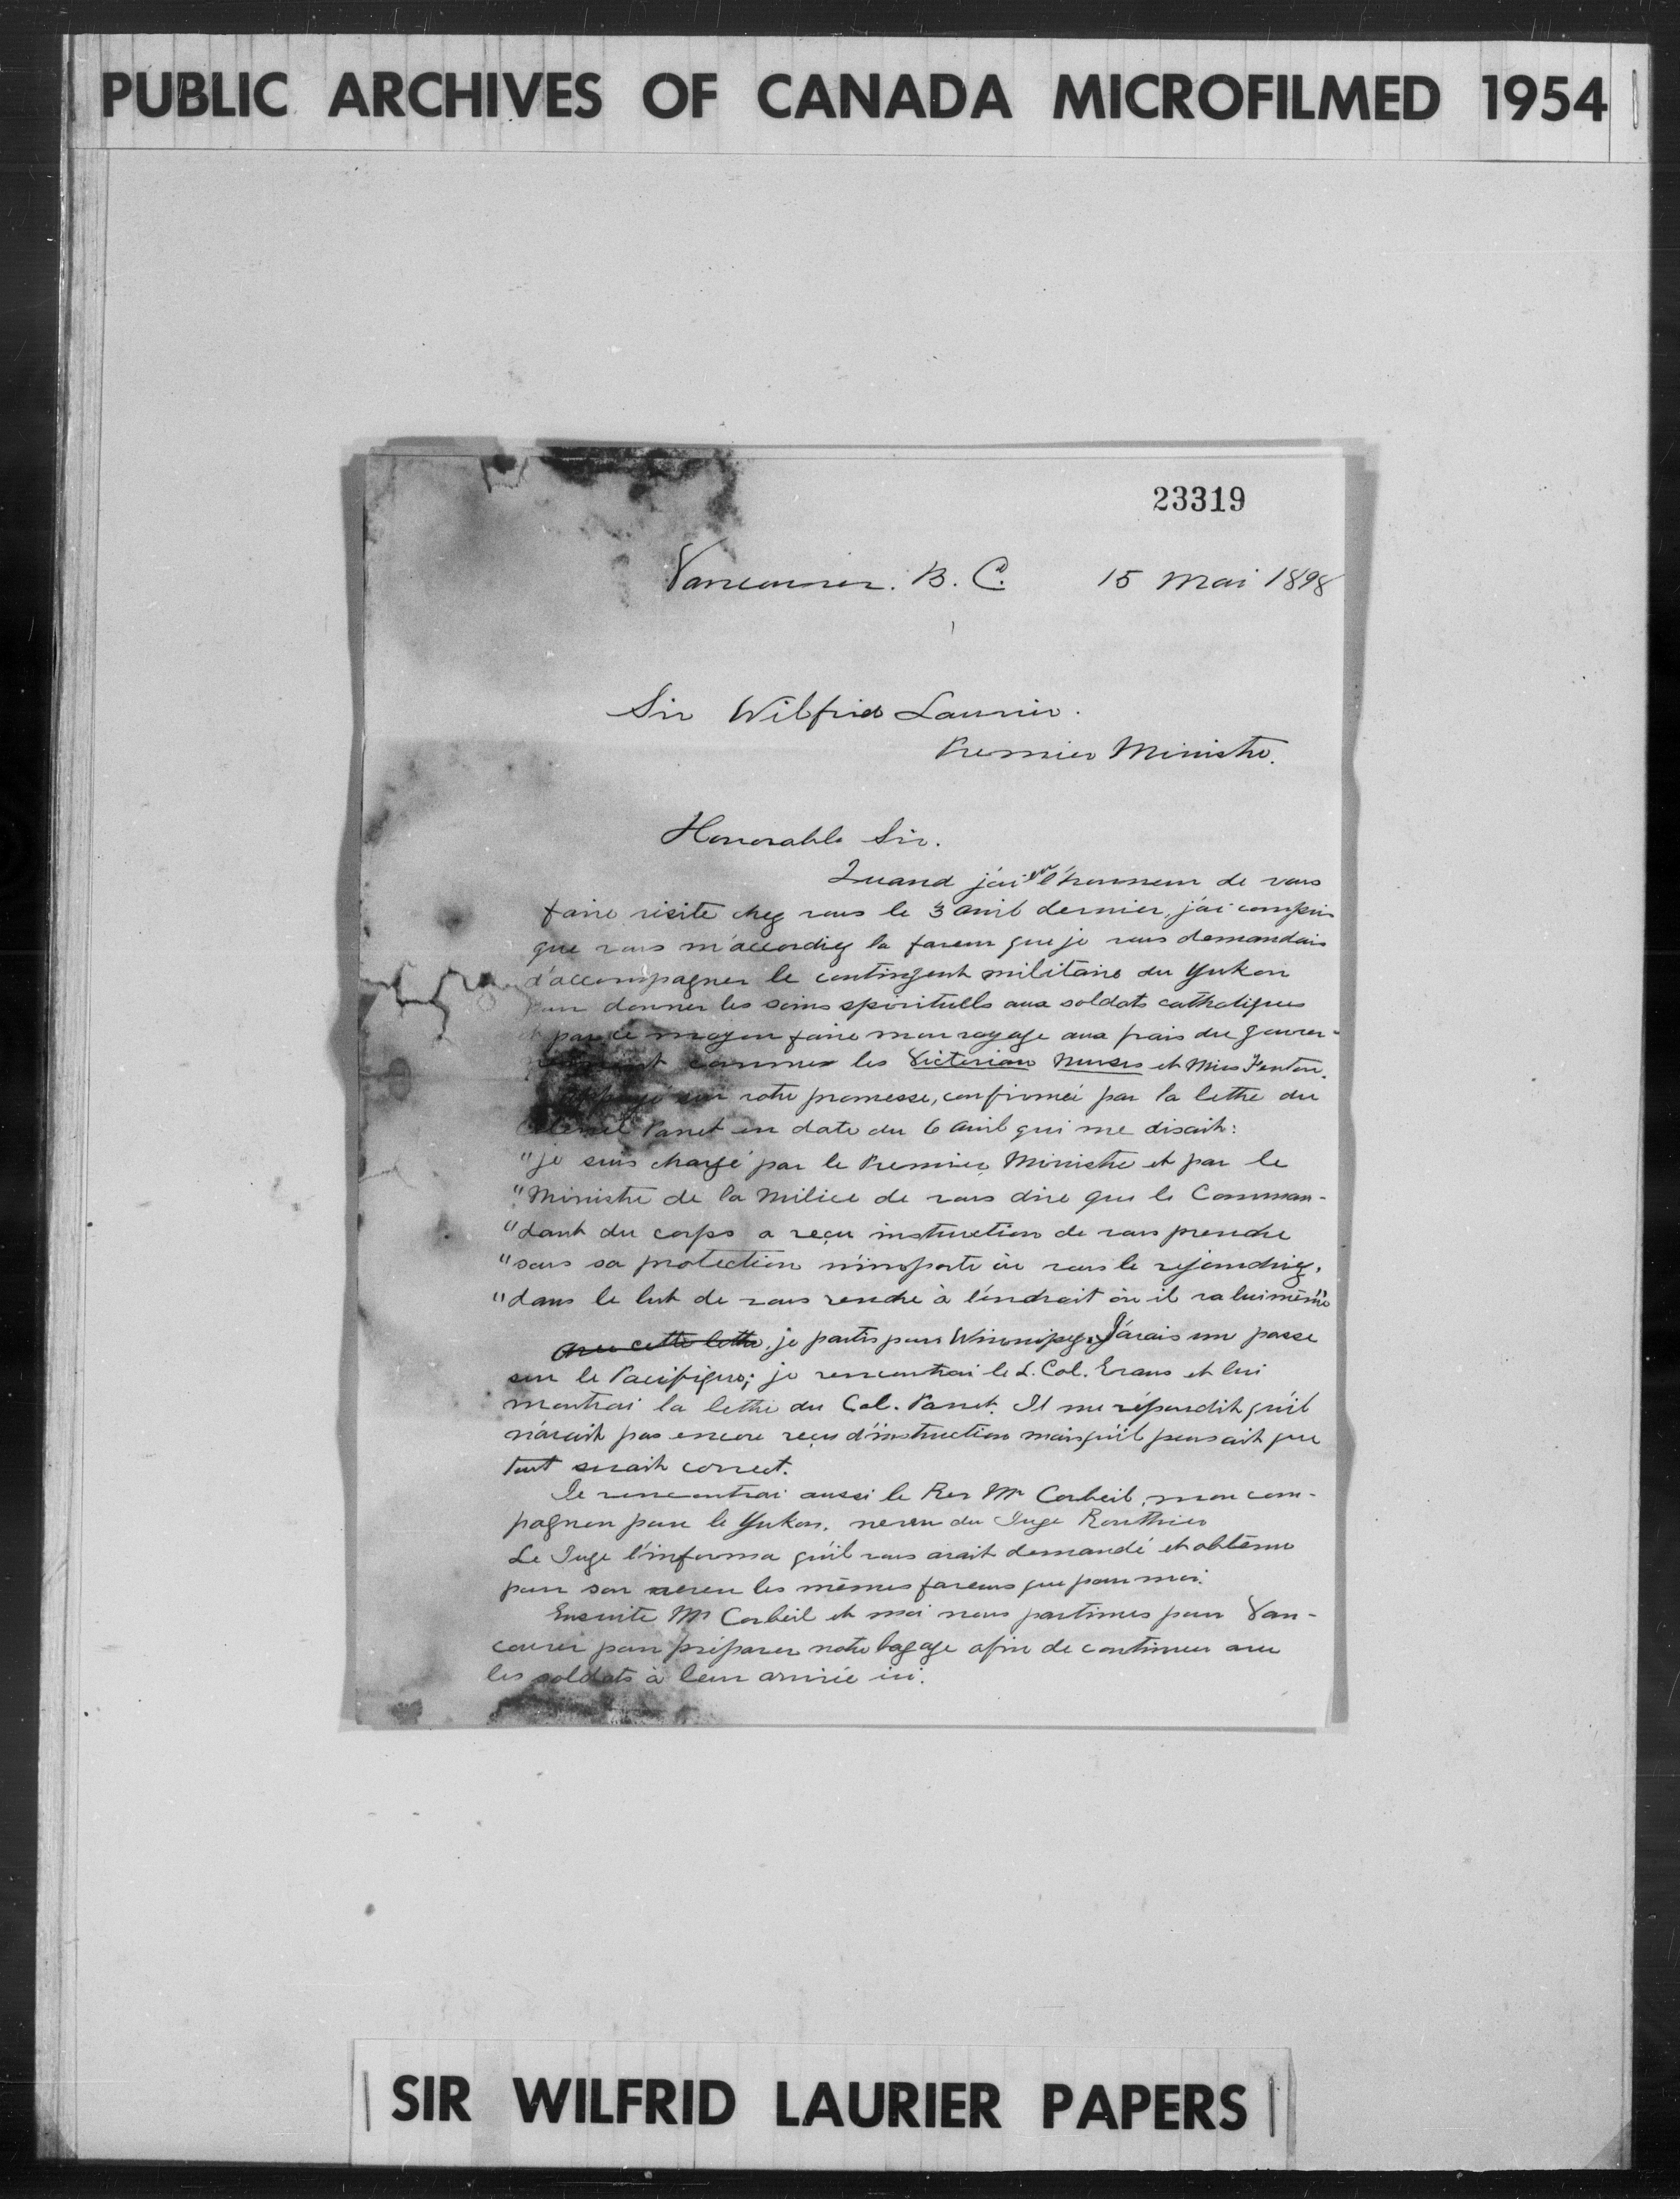 PUBLIC ARCHIVES OF CANADA MICROFILMED 1954
23319
Vancouver. B. C. 15 Mai 1898
Sir Wilfrid Laurier.
Premier Ministre.
Honorable Sir.
Quand j'ai eu l'honneur de vous
faire visite chez vous le 3 Avril dernier, j'ai compris
que vous m'accordiez la faveur que je vous demandais
d'accompagner le contingent militaire du Yukon
pour donner les soins spirituells aux soldats catholiques
et par ce moyen faire mon voyage aux frais du gouver-
comme les Victorian Nurses et Miss Fenton.
sur votre promesse, confirmée par la lettre du
Colonel Panet en date du 6 Avril qui me disait:
"je suis chargé par le Premier Ministre et par le
"Ministre de la Milice de vous dire que le Comman-
"dant du corps a reçu instruction de vous prendre
"sous sa protection n'importe où vous le rejoindriez,
"dans le but de vous rendre à l'endroit où il va lui même"
Avec cette lettre, je partis pour Winnipeg. J'avais une passe
sur le Pacifique; je rencontrai le L. Col. Evans et lui
montrai la lettre du Col. Panet. Il me répondit qu'il
n'avait pas encore reçu d'instruction mais qu'il pensait que
tout serait correct.
Je rencontrai aussi le Rev Mr Corbeil, mon com-
pagnon pour le Yukon, neveu du Juge Routhier
Le Juge l'informa qu'il vous avait demandé et obtenu
pour son neveu les mêmes faveurs que pour moi.
Ensuite Mr Corbeil et moi nous partimes pour Van-
couver pour préparer notre bagage afin de continuer avec
les soldats à leur arrivée ici.
SIR WILFRID LAURIER PAPERS